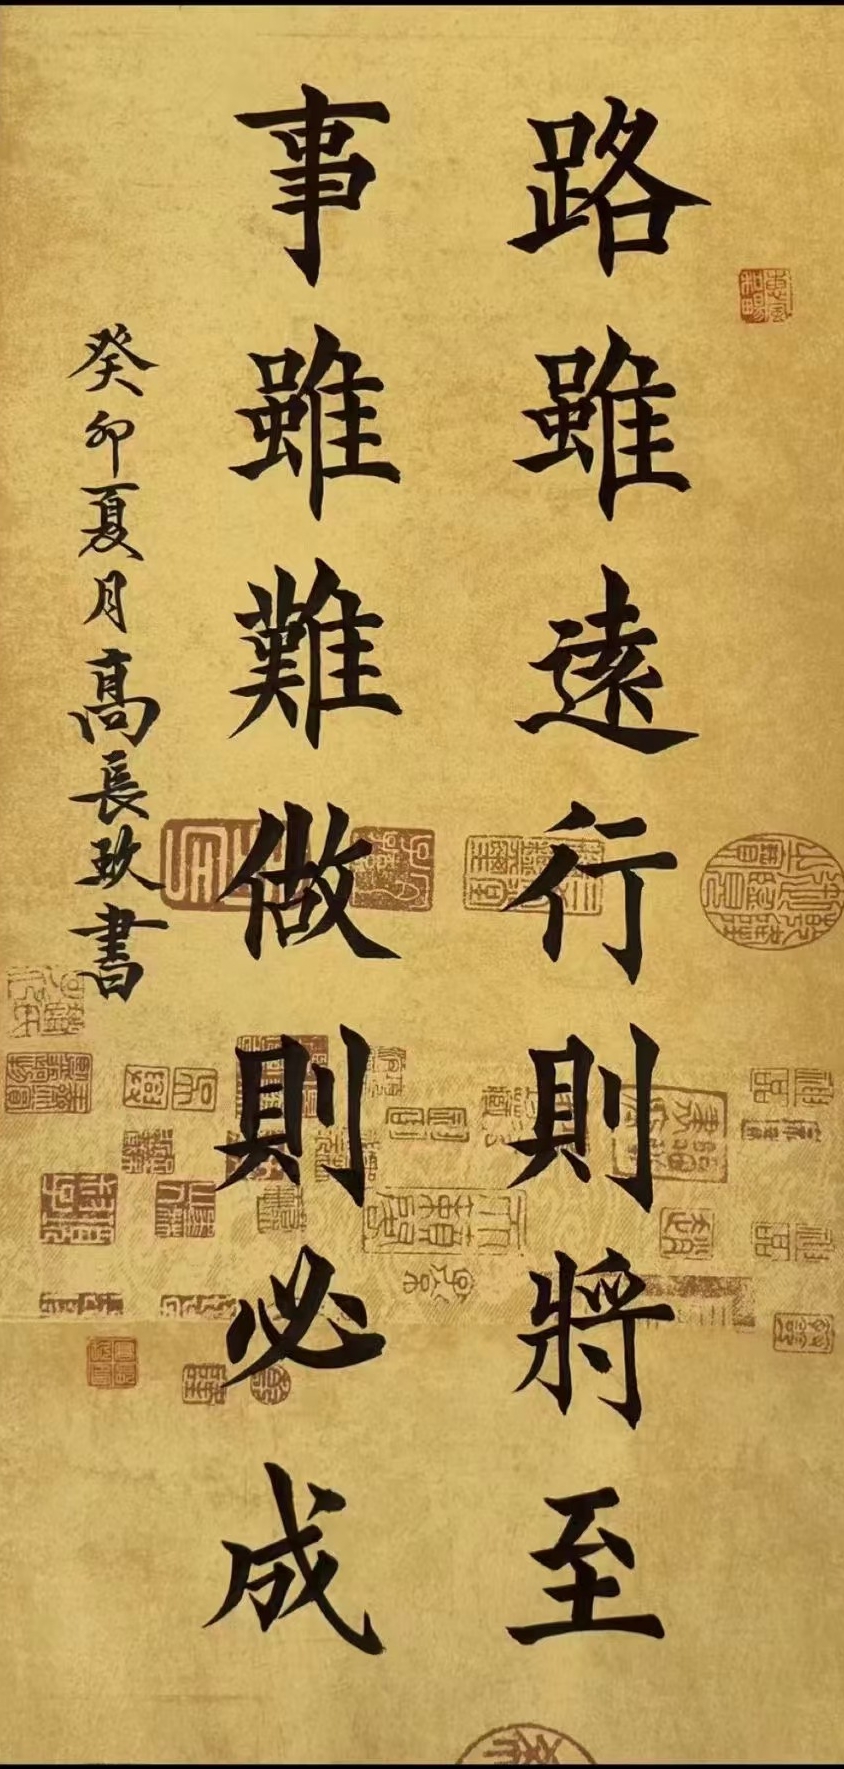 路雖遠行則將至
事雖難做則必成
癸卯夏月高長玖書
惠風和暢